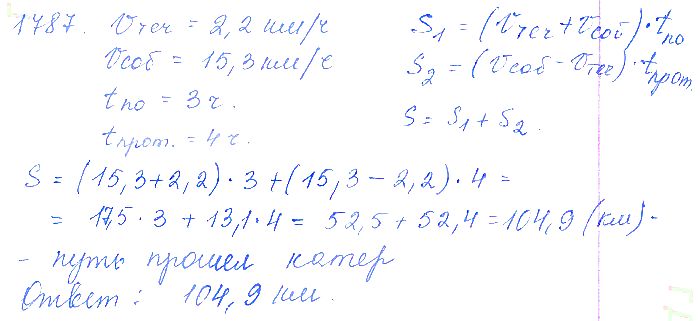 1787. Vтеч = 2,2 км/ч
Vсоб = 15,3 км/ч
tпо = 3 ч.
tпрот. = 4 ч.
S₁ = (Vтеч + Vсоб) · tпо
S₂ = (Vсоб - Vтеч) · tпрот.
S = S₁ + S₂.
S = (15,3+2,2) · 3 + (15,3 - 2,2) · 4 =
= 17,5 · 3 + 13,1 · 4 = 52,5 + 52,4 = 104,9 (км) -
- путь прошел катер
Ответ: 104,9 км.